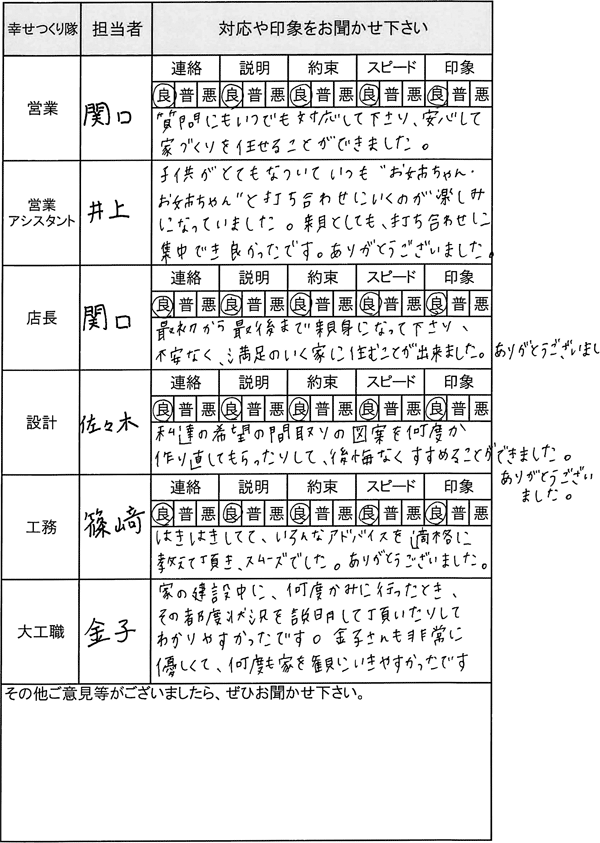 幸せつくり隊 担当者 対応や印象をお聞かせ下さい
営業 関口
連絡 説明 約束 スピード 印象
良 普 悪 良 普 悪 良 普 悪 良 普 悪 良 普 悪
質問にもいつでも対応して下さり、安心して
家づくりを任せることができました。
営業
アシスタント 井上
子供がとてもなついていつも"お姉ちゃん・
お姉ちゃん"と打ち合わせにいくのが楽しみ
になっていました。親としても、打ち合わせに
集中でき良かったです。ありがとうございました。
店長 関口
連絡 説明 約束 スピード 印象
良 普 悪 良 普 悪 良 普 悪 良 普 悪 良 普 悪
最初から最後まで親身になって下さり、
不安なく、満足のいく家に住むことが出来ました。ありがとうございまし
設計 佐々木
連絡 説明 約束 スピード 印象
良 普 悪 良 普 悪 良 普 悪 良 普 悪 良 普 悪
私達の希望の間取りの図案を何度か
作り直してもらったりして、後悔なくすすめることができました。
ありがとうござい
ました。
工務 篠﨑
連絡 説明 約束 スピード 印象
良 普 悪 良 普 悪 良 普 悪 良 普 悪 良 普 悪
はきはきしてて、いろんなアドバイスを適格に
教えて頂き、スムーズでした。ありがとうございました。
大工職 金子
家の建設中に、何度かみに行ったとき、
その都度状況を説明して頂いたりして
わかりやすかったです。金子さんも非常に
優しくて、何度も家を観にいきやすかったです
その他ご意見等がございましたら、ぜひお聞かせ下さい。